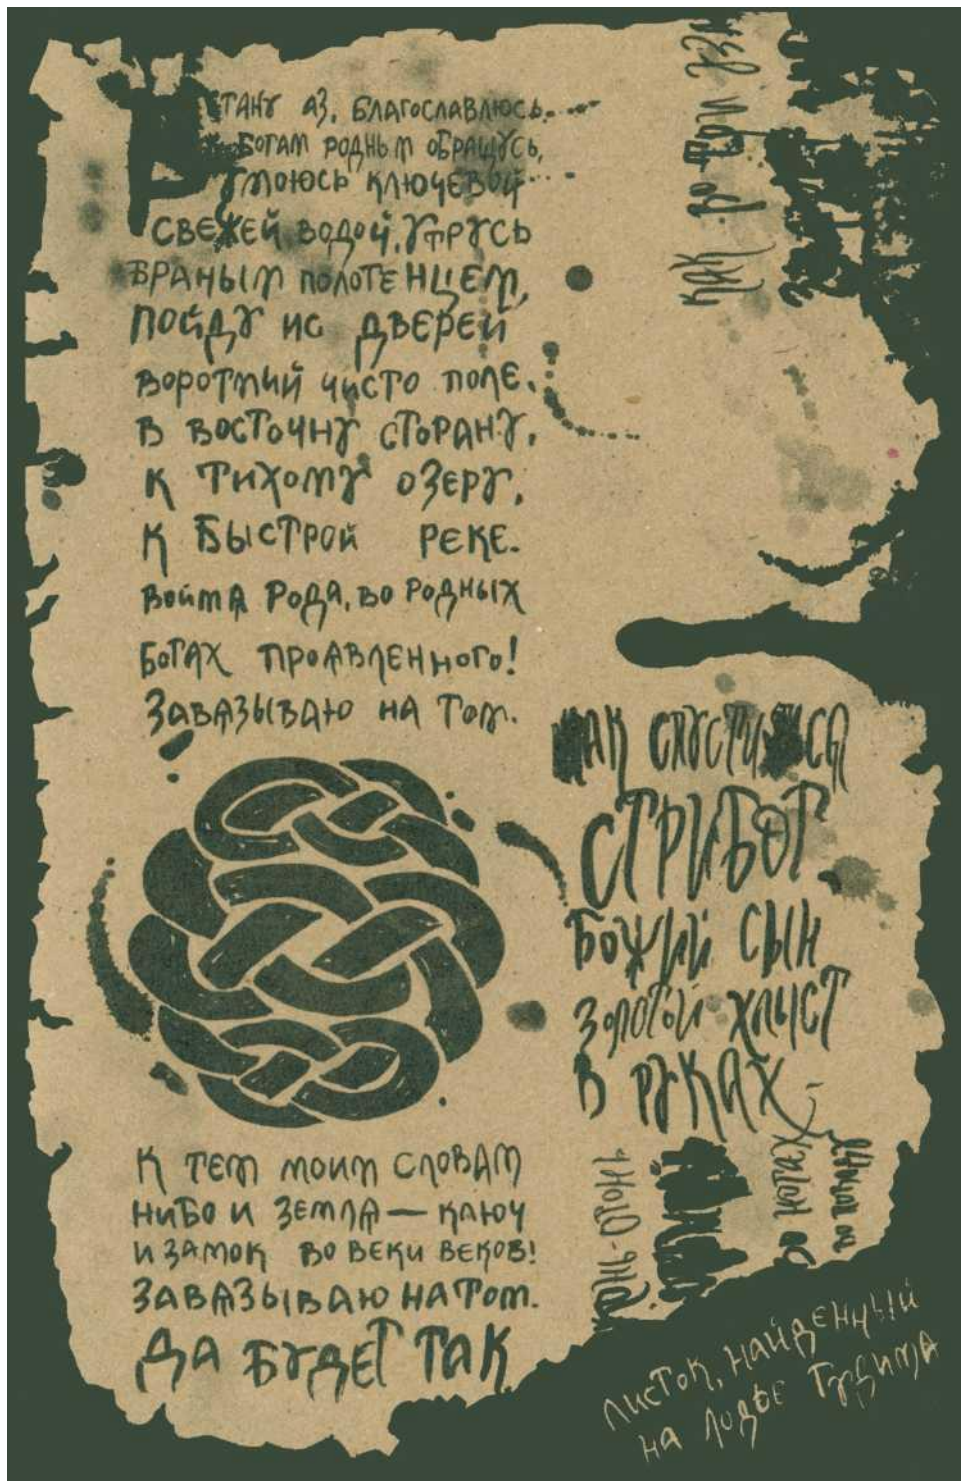 Встану аз, благославлюсь.
Богам родным обращусь,
умоюсь ключевой
свежей водой, утрусь
браным полотенцем,
пойду ис дверей
воротмий чисто поле.
В восточну сторану,
к тихому озеру,
к быстрой реке.
Войма Рода, во родных
богах проявленного!
Завязываю на том.
К тем моим словам
нибо и земля — ключ
и замок во веки веков!
Завязываю на том.
Да будет так
Как во три
как спустился
Стрибог
божий сын
золотой хлыст
в руках
Листок, найденный
на лодье Тудима